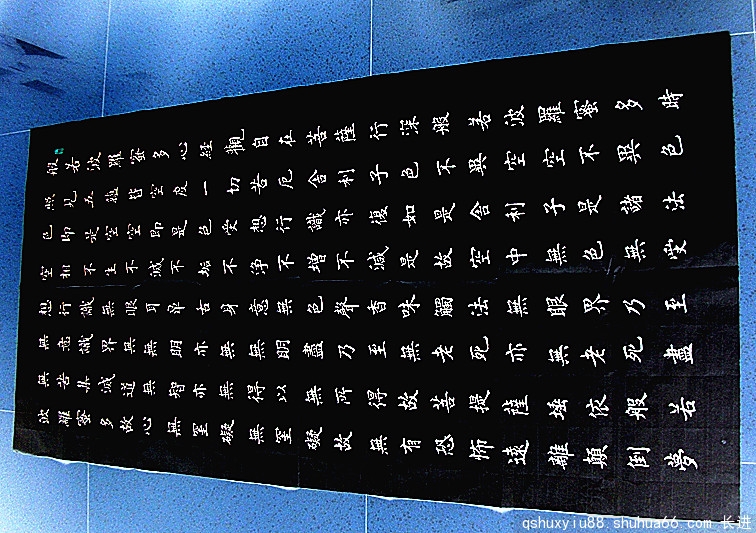 般若波羅蜜多心經觀自在菩薩行深般若波羅蜜多時
照見五蘊皆空度一切苦厄舍利子色不異空空不異色
色即是空空即是色受想行識亦復如是舍利子是諸法
空相不生不滅不垢不淨不增不減是故空中無色無受
想行識無眼耳鼻舌身意無色聲香味觸法無眼界乃至
無意識界無無明亦無無明盡乃至無老死亦無老死盡
無苦集滅道無智亦無得以無所得故菩提薩埵依般若
波羅蜜多故心無罣礙無罣礙故無有恐怖遠離顛倒夢
qshuxyiu88.shuhua66.com 长进